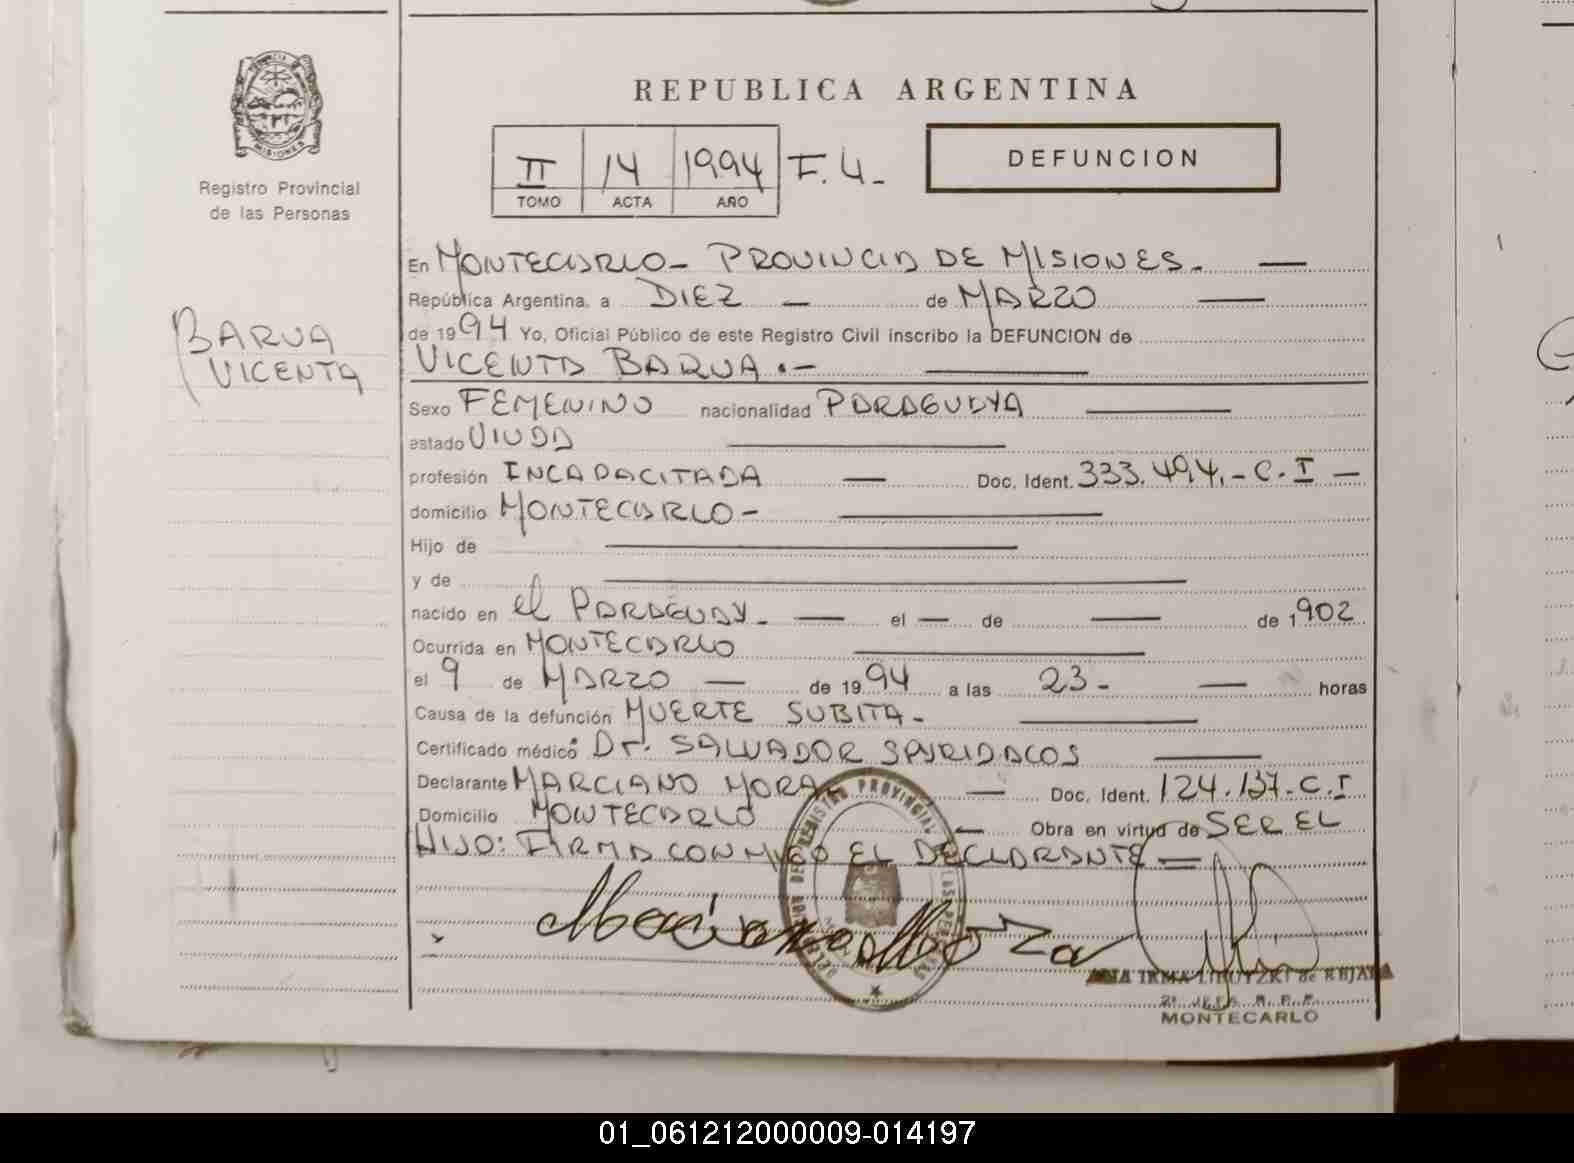 REPUBLICA ARGENTINA
MISIONES
Registro Provincial
de las Personas
II 14 1994 F. 4.-
TOMO ACTA AÑO
DEFUNCION
BARUA
VICENTA
En MONTECARLO- PROVINCIA DE MISIONES.- —
República Argentina, a DIEZ — de MARZO —
de 1994 Yo, Oficial Público de este Registro Civil inscribo la DEFUNCION de
VICENTA BARUA.-
Sexo FEMENINO nacionalidad PARAGUAYA
estado VIUDA
profesión INCAPACITADA — Doc. Ident. 333.494.- C.I —
domicilio MONTECARLO-
Hijo de
y de
nacido en el PARAGUAY.- — el — de — de 1902
Ocurrida en MONTECARLO
el 9 de MARZO — de 1994 a las 23- — horas
Causa de la defunción MUERTE SUBITA.-
Certificado médico Dr. SALVADOR SPYRIDACOS
Declarante MARCIANO MORA — Doc. Ident. 124.137.-C.I
Domicilio MONTECARLO — Obra en virtud de SER EL
HIJO: FIRMA CONMIGO EL DECLARANTE —
Marciano Mora
REGISTRO PROVINCIAL
de REJALA
MONTECARLO
01_061212000009-014197